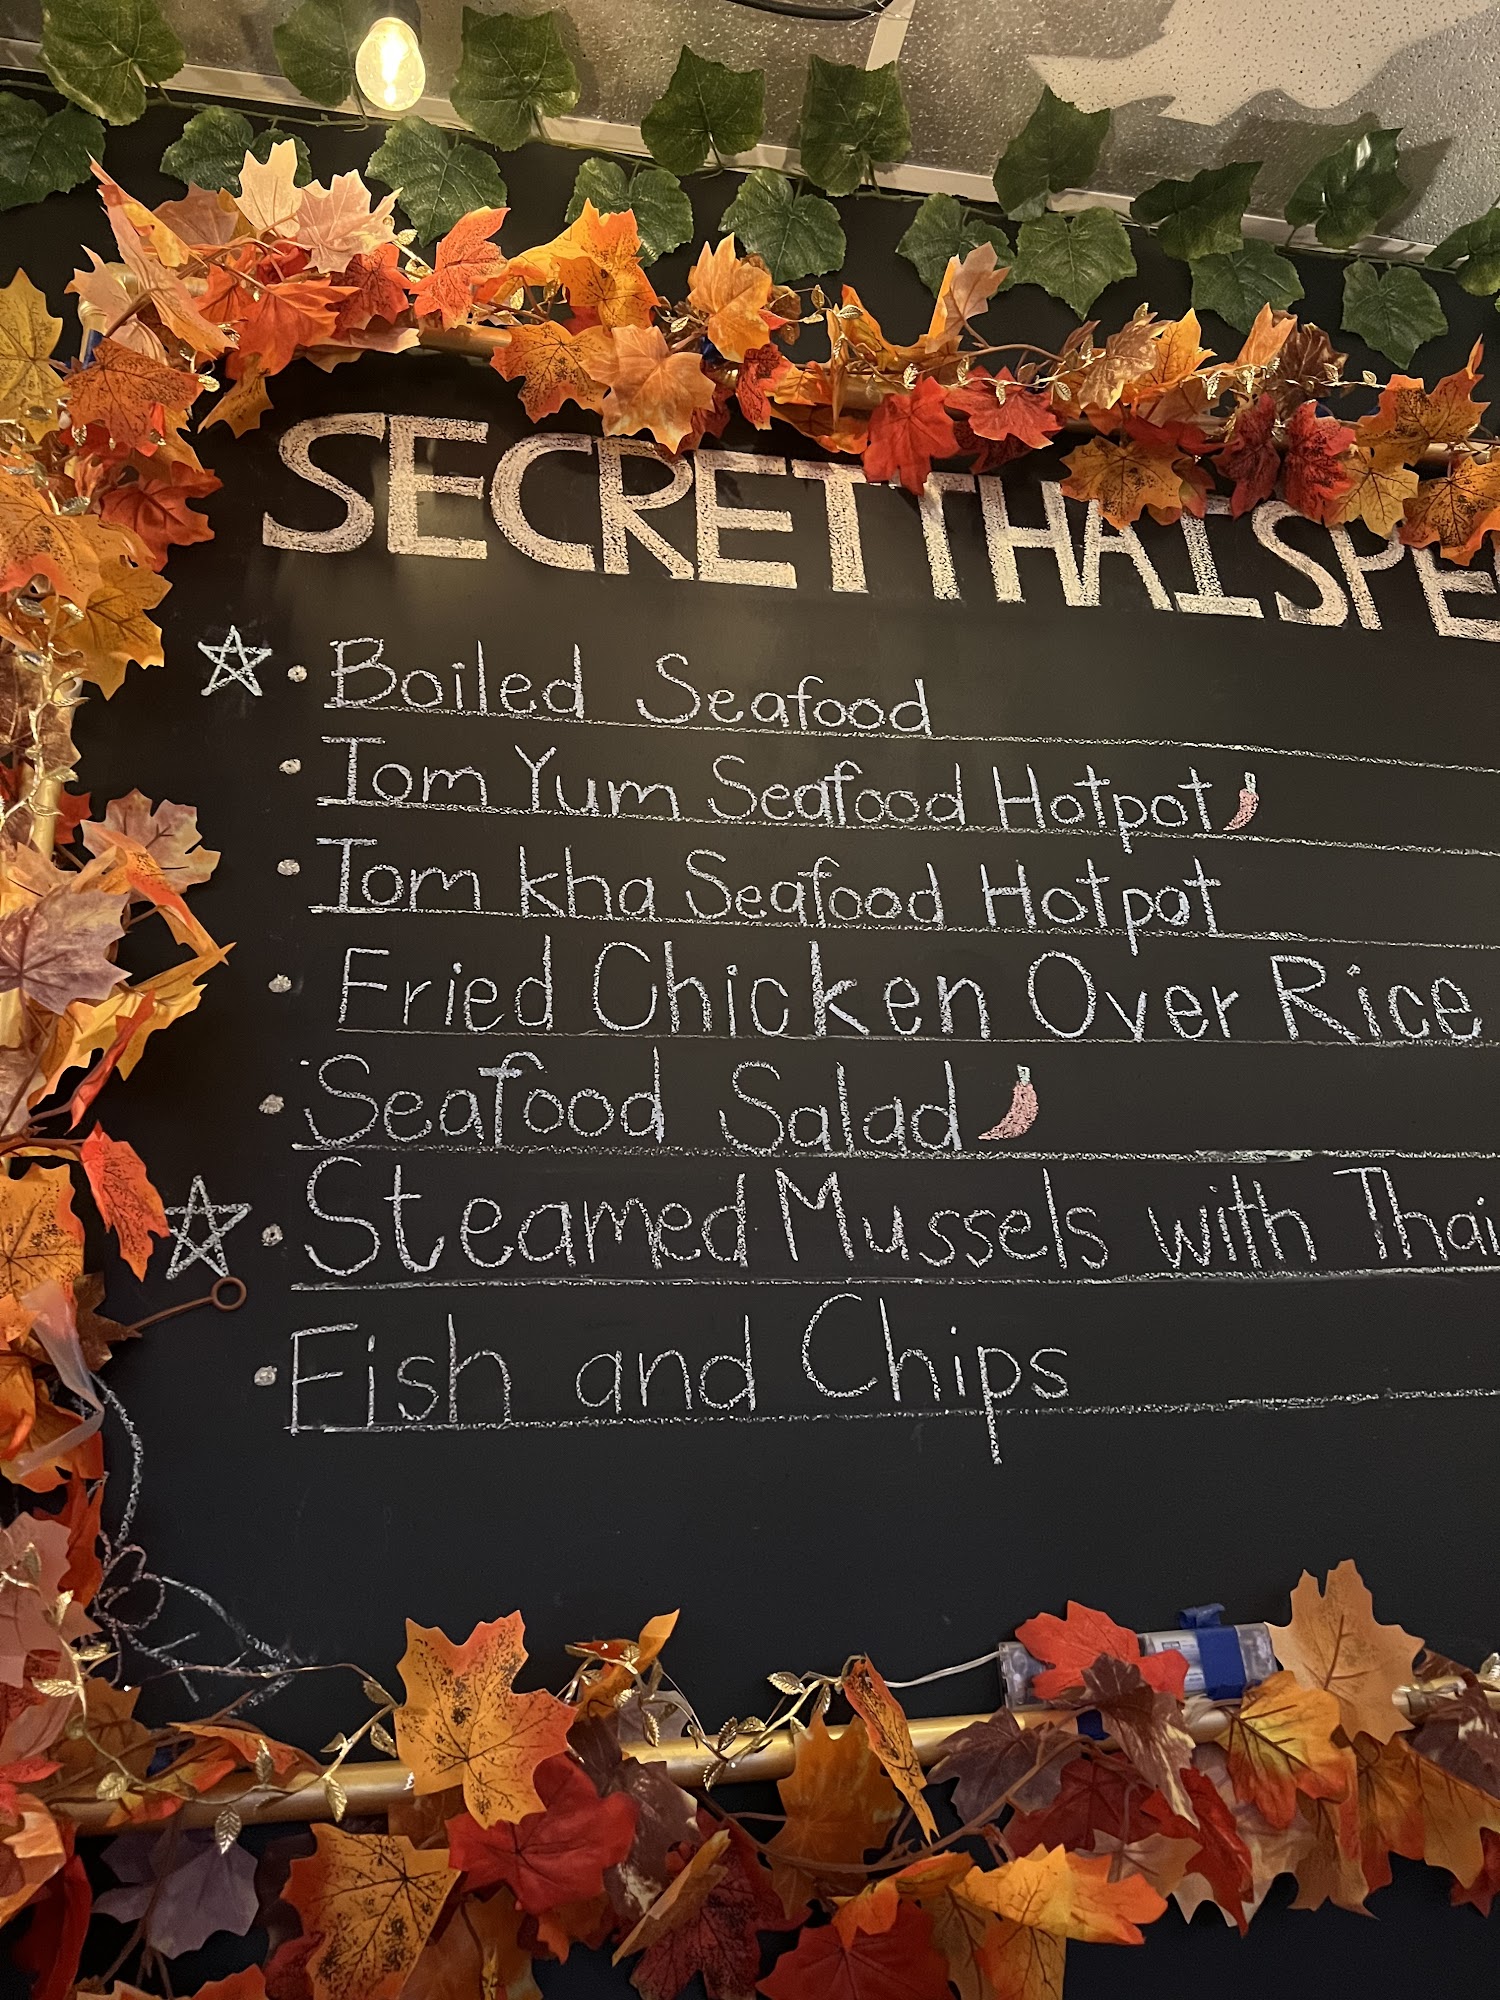 SECRET THAI SPE
Boiled Seafood
Tom Yum Seafood Hotpot
Tom kha Seafood Hotpot
Fried Chicken Over Rice
Seafood Salad
Steamed Mussels with Thai
Fish and Chips